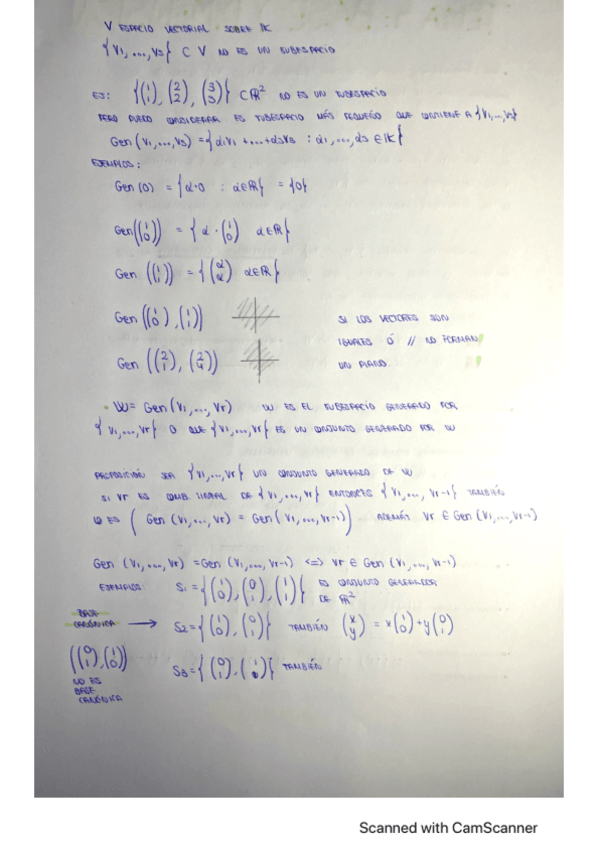 V ESPACIO VECTORIAL SOBRE K
{V1, ..., Vs} ⊂ V NO ES UN SUBESPACIO
EJ: {(1 1), (2 2), (3 3)} ⊂ R² NO ES UN SUBESPACIO
PERO PUEDO CONSIDERAR ES SUBESPACIO MÁS PEQUEÑO QUE CONTIENE A {V1, ..., Vs}
Gen (V1, ..., Vs) = {α1V1 + ... + αsVs : α1, ..., αs ∈ K}
EJEMPLOS:
Gen (0) = {α·0 : α∈R} = {0}
Gen((1 0)) = {α · (1 0) α∈R}
Gen ((1 1)) = {(α α) α∈R}
Gen ((1 0), (1 1))
SI LOS VECTORES SON
IGUALES Ó // NO FORMAN
UN PLANO.
Gen ((2 1), (2 4))
W = Gen (V1, ..., Vr) W ES EL SUBESPACIO GENERADO POR
{V1, ..., Vr} O QUE {V1, ..., Vr} ES UN CONJUNTO GENERADO POR W
PROPOSICIÓN SEA {V1, ..., Vr} UN CONJUNTO GENERADO DE W
SI Vr ES COMB. LINEAL DE {V1, ..., Vr} ENTONCES {V1, ..., Vr-1} TAMBIÉN
LO ES (Gen (V1, ..., Vr) = Gen (V1, ..., Vr-1)) ADEMÁS Vr ∈ Gen (V1, ..., Vr-1)
Gen (V1, ..., Vr) = Gen (V1, ..., Vr-1) <=> Vr ∈ Gen (V1, ..., Vr-1)
EJEMPLOS: S1 = {(1 0), (0 1), (1 1)} ES CONJUNTO GENERADOR
DE R²
BASE
CANÓNICA → S2 = {(1 0), (0 1)} TAMBIÉN (x y) = x(1 0) + y(0 1)
((0 1), (1 0))
NO ES
BASE
CANÓNICA
S3 = {(0 1), (1 } TAMBIÉN
Scanned with CamScanner